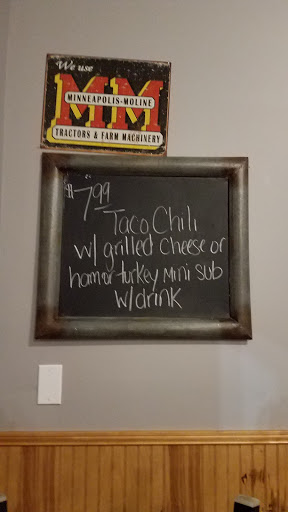 We use
MM
MINNEAPOLIS-MOLINE
TRACTORS & FARM MACHINERY
$7.99
Taco Chili
w/ grilled cheese or
ham or turkey Mini Sub
w/drink